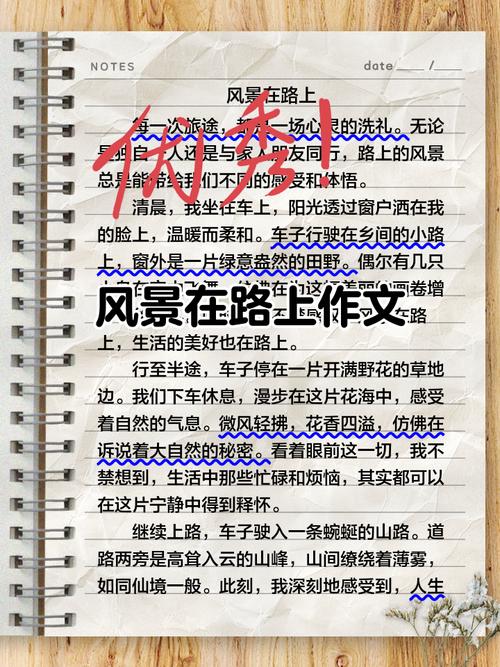 NOTES
date /
风景在路上
优秀!
每一次旅途，都是一场心灵的洗礼。无论
是独自一人还是与家人朋友同行，路上的风景
总是能带给我们不同的感受和体悟。
清晨，我坐在车上，阳光透过窗户洒在我
的脸上，温暖而柔和。车子行驶在乡间的小路
上，窗外是一片绿意盎然的田野。偶尔有几只
画卷增
风景在路上作文
在路
上，生活的美好也在路上。
行至半途，车子停在一片开满野花的草地
边。我们下车休息，漫步在这片花海中，感受
着自然的气息。微风轻拂，花香四溢，仿佛在
诉说着大自然的秘密。看着眼前这一切，我不
禁想到，生活中那些忙碌和烦恼，其实都可以
在这片宁静中得到释怀。
继续上路，车子驶入一条蜿蜒的山路。道
路两旁是高耸入云的山峰，山间缭绕着薄雾，
如同仙境一般。此刻，我深刻地感受到，人生